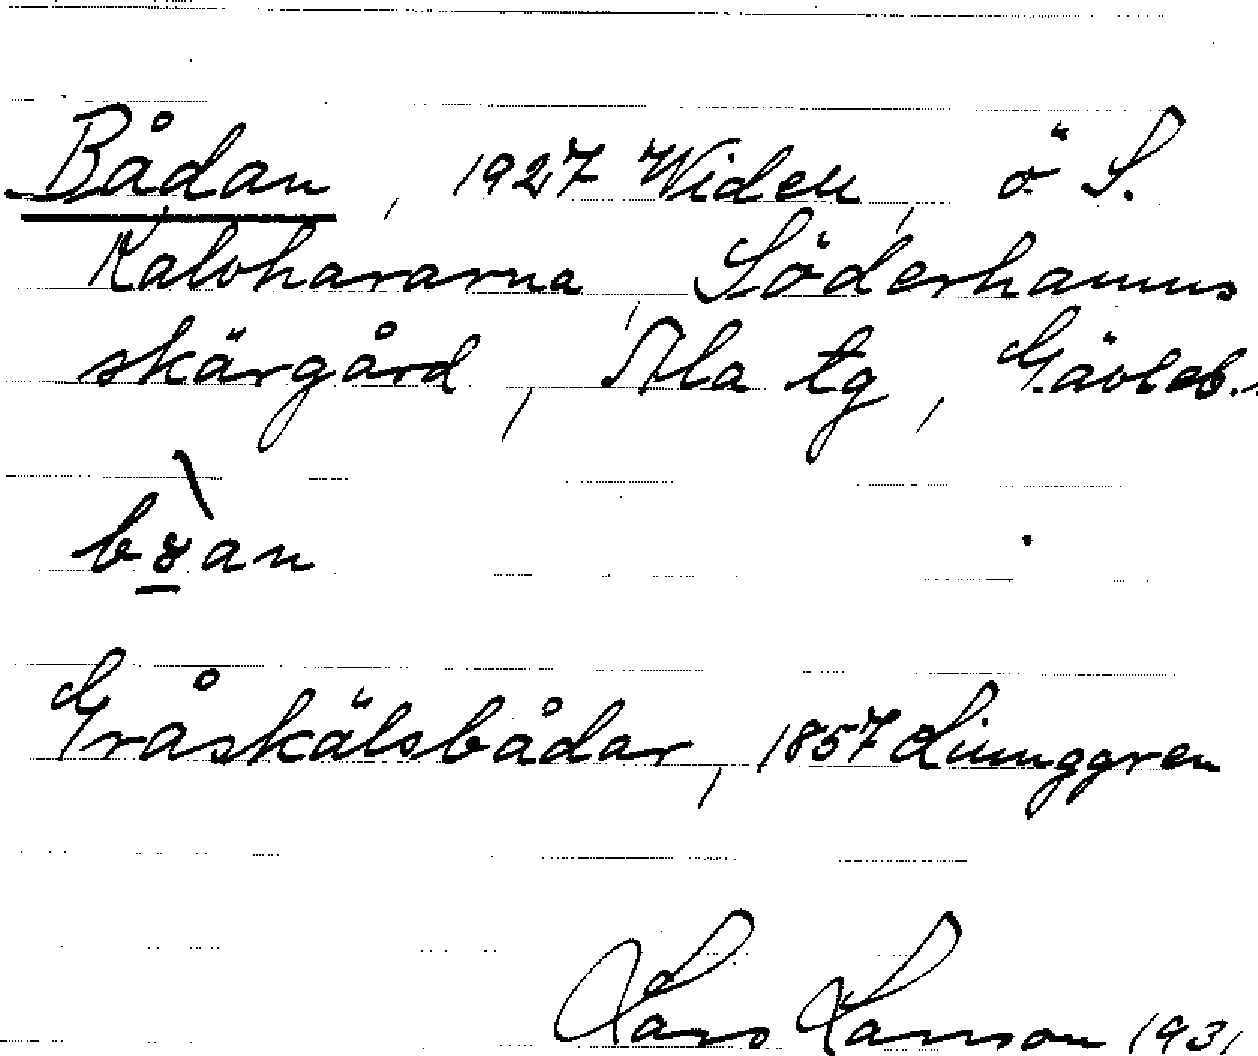 Bådan, 1927 Widell, ö S.
Kalvhararna, Söderhamns
skärgård, Ala tg, Gävleb.
b&#x0264;̀an
Gråskälsbådar, 1857 Ljunggren
Lars Larsson 1931